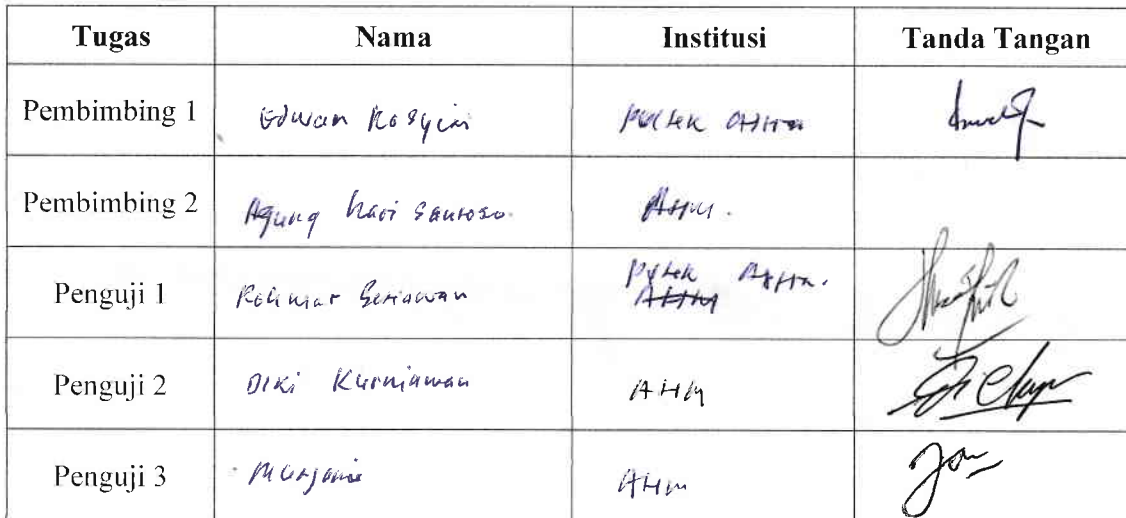 Tugas Nama Institusi Tanda Tangan
Pembimbing 1 Edwan Rosyidi Poltek
Pembimbing 2 Agung Hari Santoso
Penguji 1 Rohmat Setiawan Poltek
AHM
Penguji 2 Diki Kurniawan AHM
Penguji 3 AHM